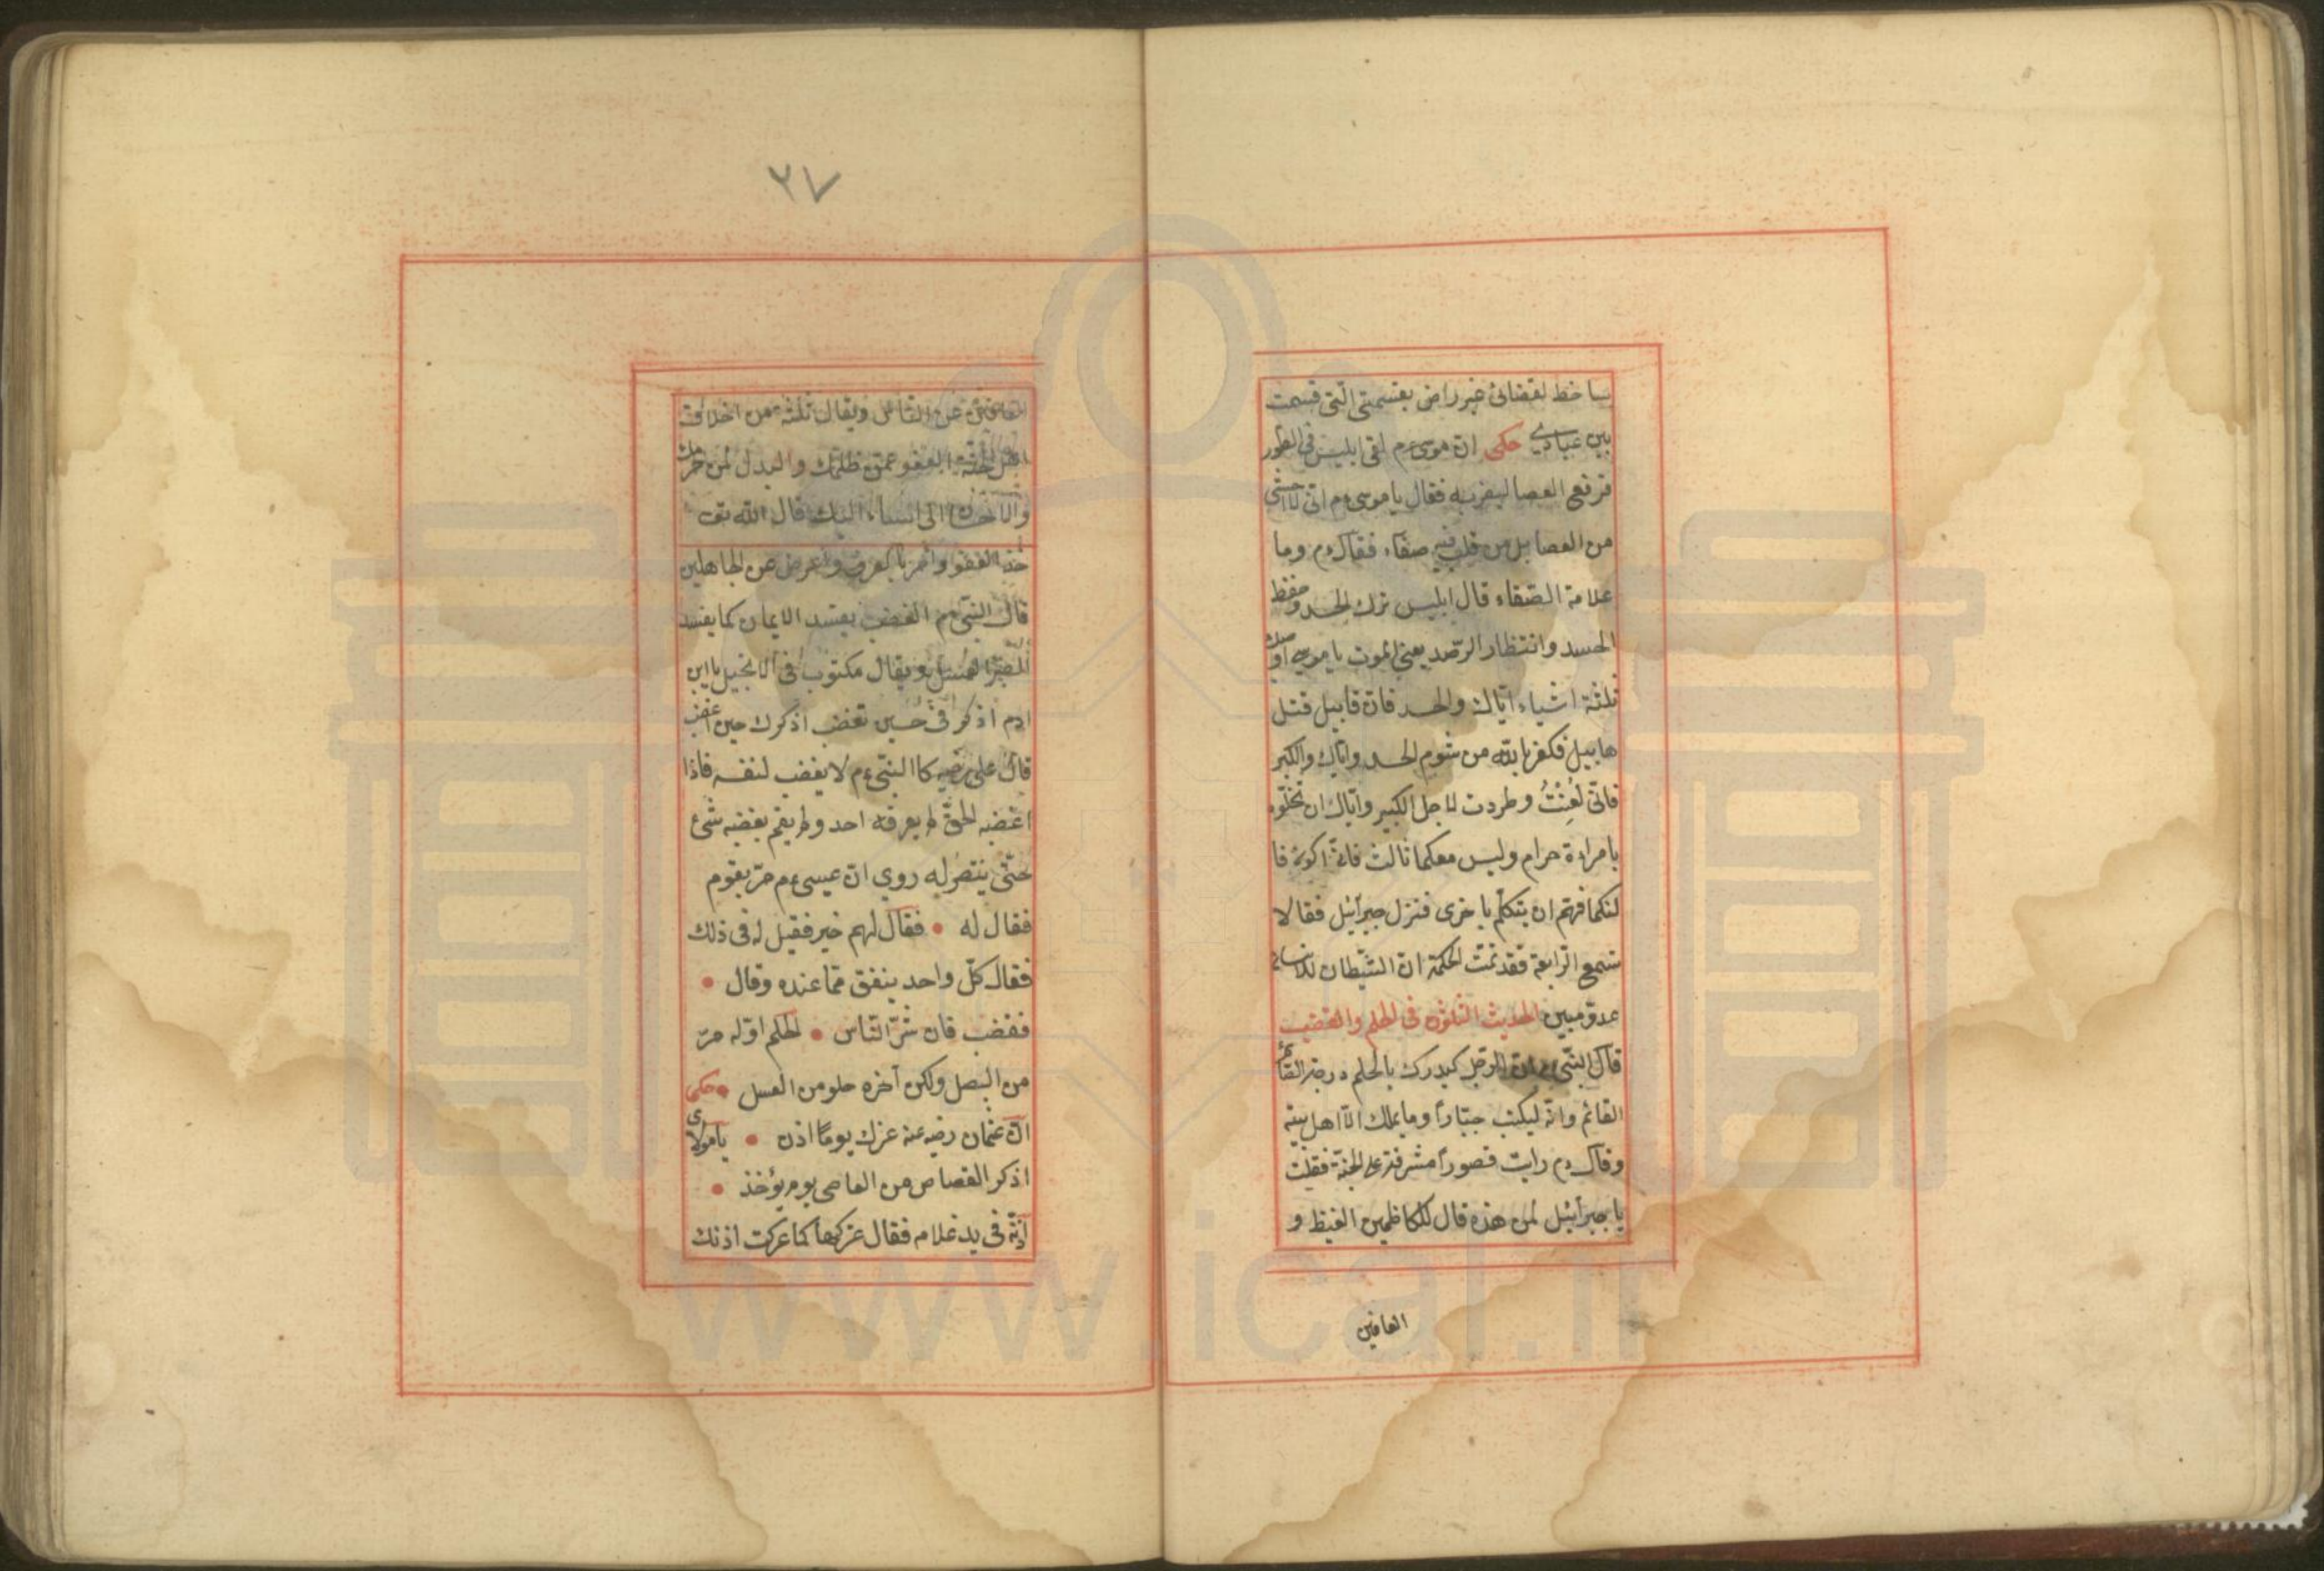 ساخط لقضائى غير راض بقسمتى التى قسمت
بين عبادى حكى ان موسى ءم لقى ابليس فى الطور
فرفع العصا ليضربه فقال يا موسى ءم انى لا اخشى
من العصا بل من قلب فيه صفاء فقال ءم وما
علامة الصفاء قال ابليس ترك الحسد وحفظ
الحسد وانتظار الرصد يعنى الموت يا موسى اوصيك
ثلثة اشياء اياك والحسد فان قابيل قتل
هابيل فكفر بالله من شوم الحسد واياك والكبر
فانى لعنت وطردت لاجل الكبر واياك ان تخلو
بامراءة حرام وليس معكما ثالث فانى اكون ثا
لثكما فهم ان يتكلم باخرى فنزل جبرآئيل فقال لا
تسمع الرابعة فقد تمت الحكمة ان الشيطان للانسان
عدو مبين الحديث الثلثون فى الحلم والغضب
قال النبى ءم ان الرجل ليدرك بالحلم درجة الصائم
القائم وانه ليكتب جبارًا وما يملك الا اهل بيته
وقال ءم رايت قصورًا مشرفة على الجنة فقلت
يا جبرآئيل لمن هذه قال للكاظمين الغيظ و
العافين
٢٧
العافين عن الناس ويقال ثلثة من اخلاق
اهل الجنة العفو عمن ظلمك والبذل لمن حرمك
والاحسان الى من اساء اليك قال الله تعـ
خذ العفو وامر بالعرف واعرض عن الجاهلين
قال النبى ءم الغضب يفسد الايمان كما يفسد
الصبر العسل ويقال مكتوب فى الانجيل يا ابن
ادم اذكرنى حين تغضب اذكرك حين اغضب
قال على رضيه كا النبى ءم لا يغضب لنفسه فاذا
اغضبه الحق لم يعرفه احد ولم يقم بغضبه شئ
حتى ينتصر له روى ان عيسى ءم مر بقوم
فقال له • فقال لهم خير فقيل له فى ذلك
فقال كل واحد ينفق مما عنده وقال •
فغضب فان شر الناس • الحلم اوله مر
من البصل ولكن آخره حلو من العسل • حكى
ان عثمان رضيه عنه عرك يومًا اذن • يا مولاى
اذكر القصاص من العاصى يوم يؤخذ •
اذنه فى يد غلامه فقال عركها كما عركت اذنك
www.ical.ir